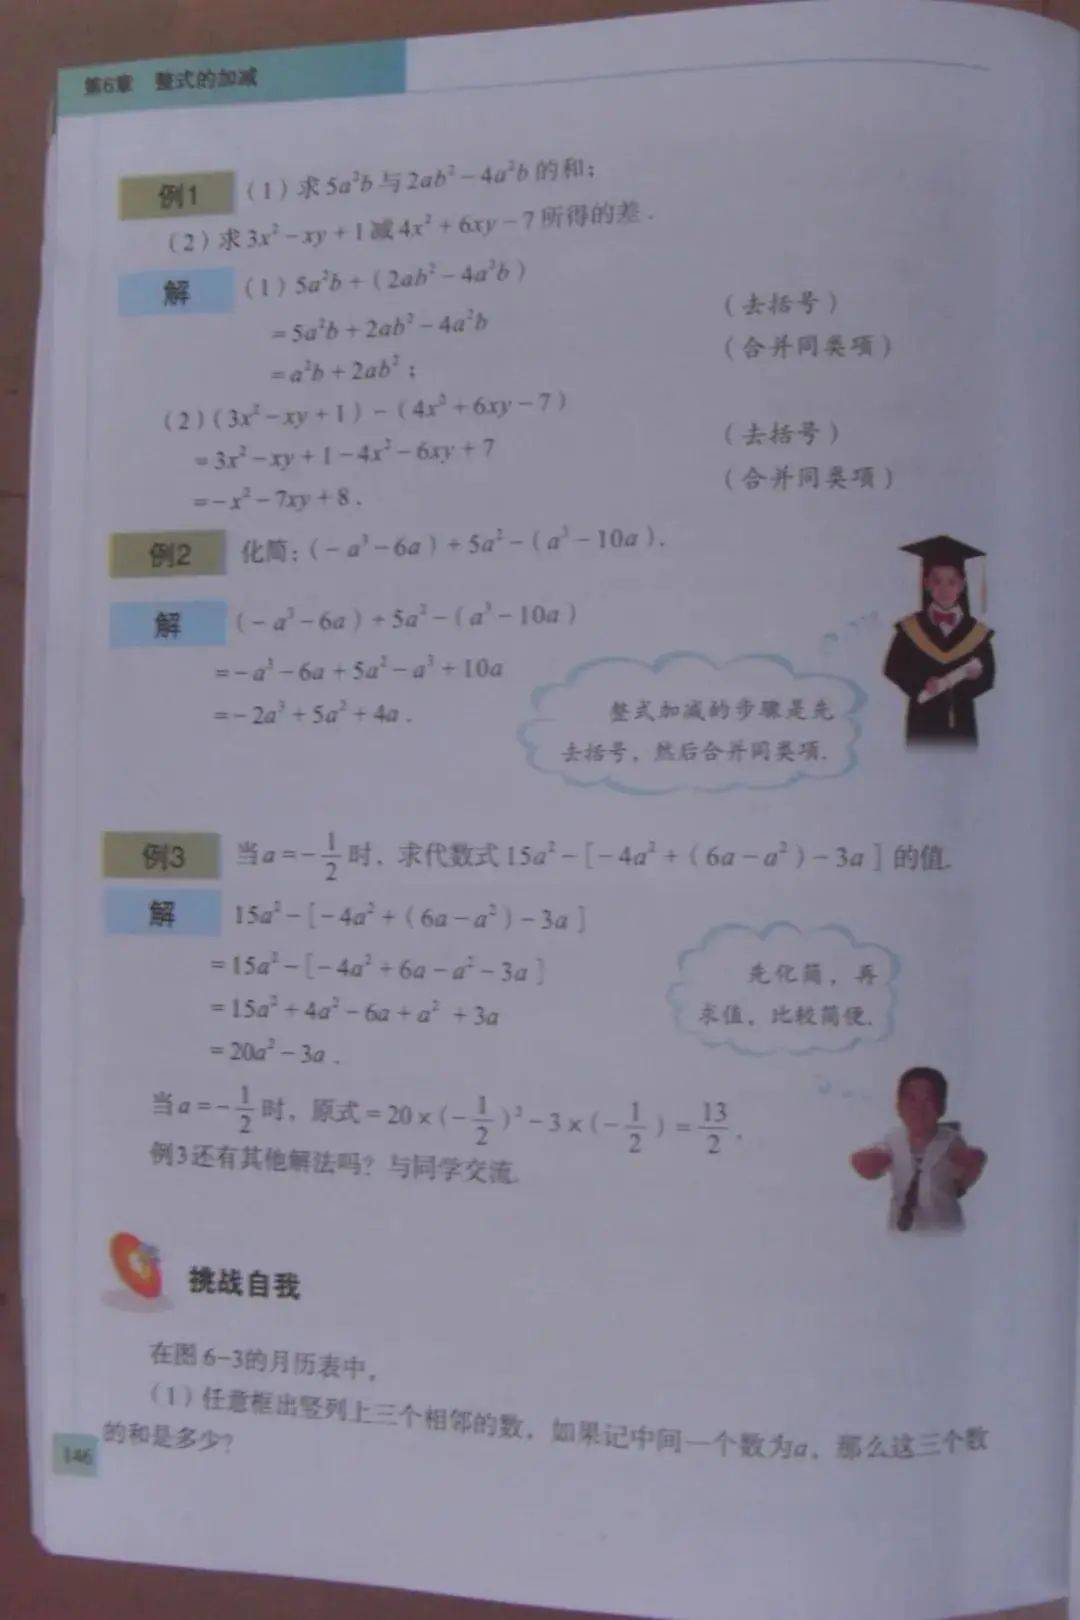 第6章 整式的加减
例1 (1)求5a²b与2ab²-4a²b的和;
(2)求3x²-xy+1减4x²+6xy-7所得的差.
解 (1)5a²b+(2ab²-4a²b)
=5a²b+2ab²-4a²b (去括号)
=a²b+2ab²; (合并同类项)
(2)(3x²-xy+1)-(4x²+6xy-7)
=3x²-xy+1-4x²-6xy+7 (去括号)
=-x²-7xy+8. (合并同类项)
例2 化简:(-a³-6a)+5a²-(a³-10a).
解 (-a³-6a)+5a²-(a³-10a)
=-a³-6a+5a²-a³+10a
=-2a³+5a²+4a.
整式加减的步骤是先
去括号,然后合并同类项.
例3 当a=-1/2时,求代数式15a²-[-4a²+(6a-a²)-3a]的值.
解 15a²-[-4a²+(6a-a²)-3a]
=15a²-[-4a²+6a-a²-3a]
=15a²+4a²-6a+a²+3a
=20a²-3a.
先化简,再
求值,比较简便.
当a=-1/2时,原式=20×(-1/2)²-3×(-1/2)=13/2.
例3还有其他解法吗?与同学交流.
挑战自我
在图6-3的月历表中,
(1)任意框出竖列上三个相邻的数,如果记中间一个数为a,那么这三个数
的和是多少?
146